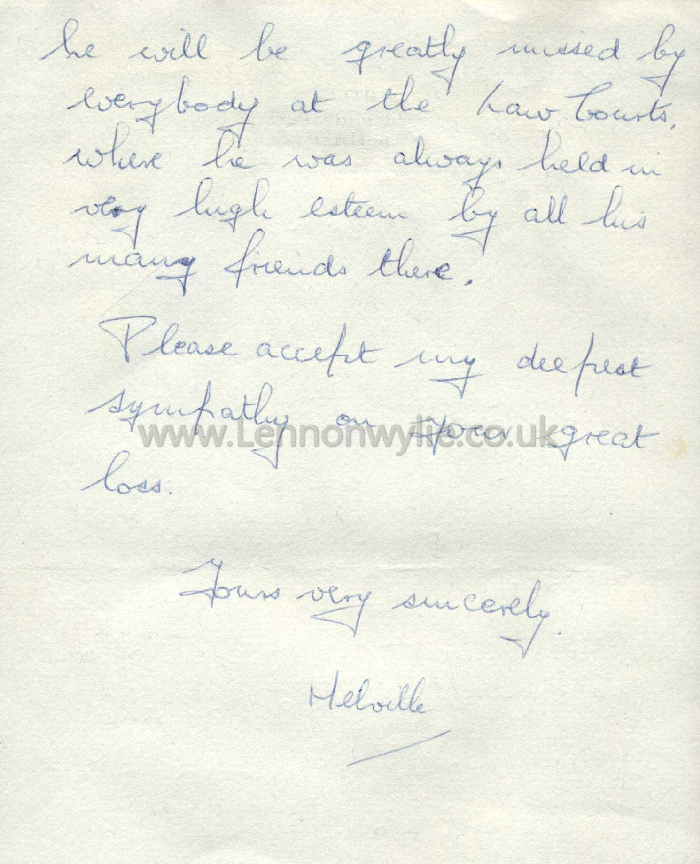 he will be greatly missed by
everybody at the Law Courts,
where he was always held in
very high esteem by all his
many friends there.
Please accept my deepest
sympathy on your great
loss.
www.Lennonwylie.co.uk
Yours very sincerely,
Melville